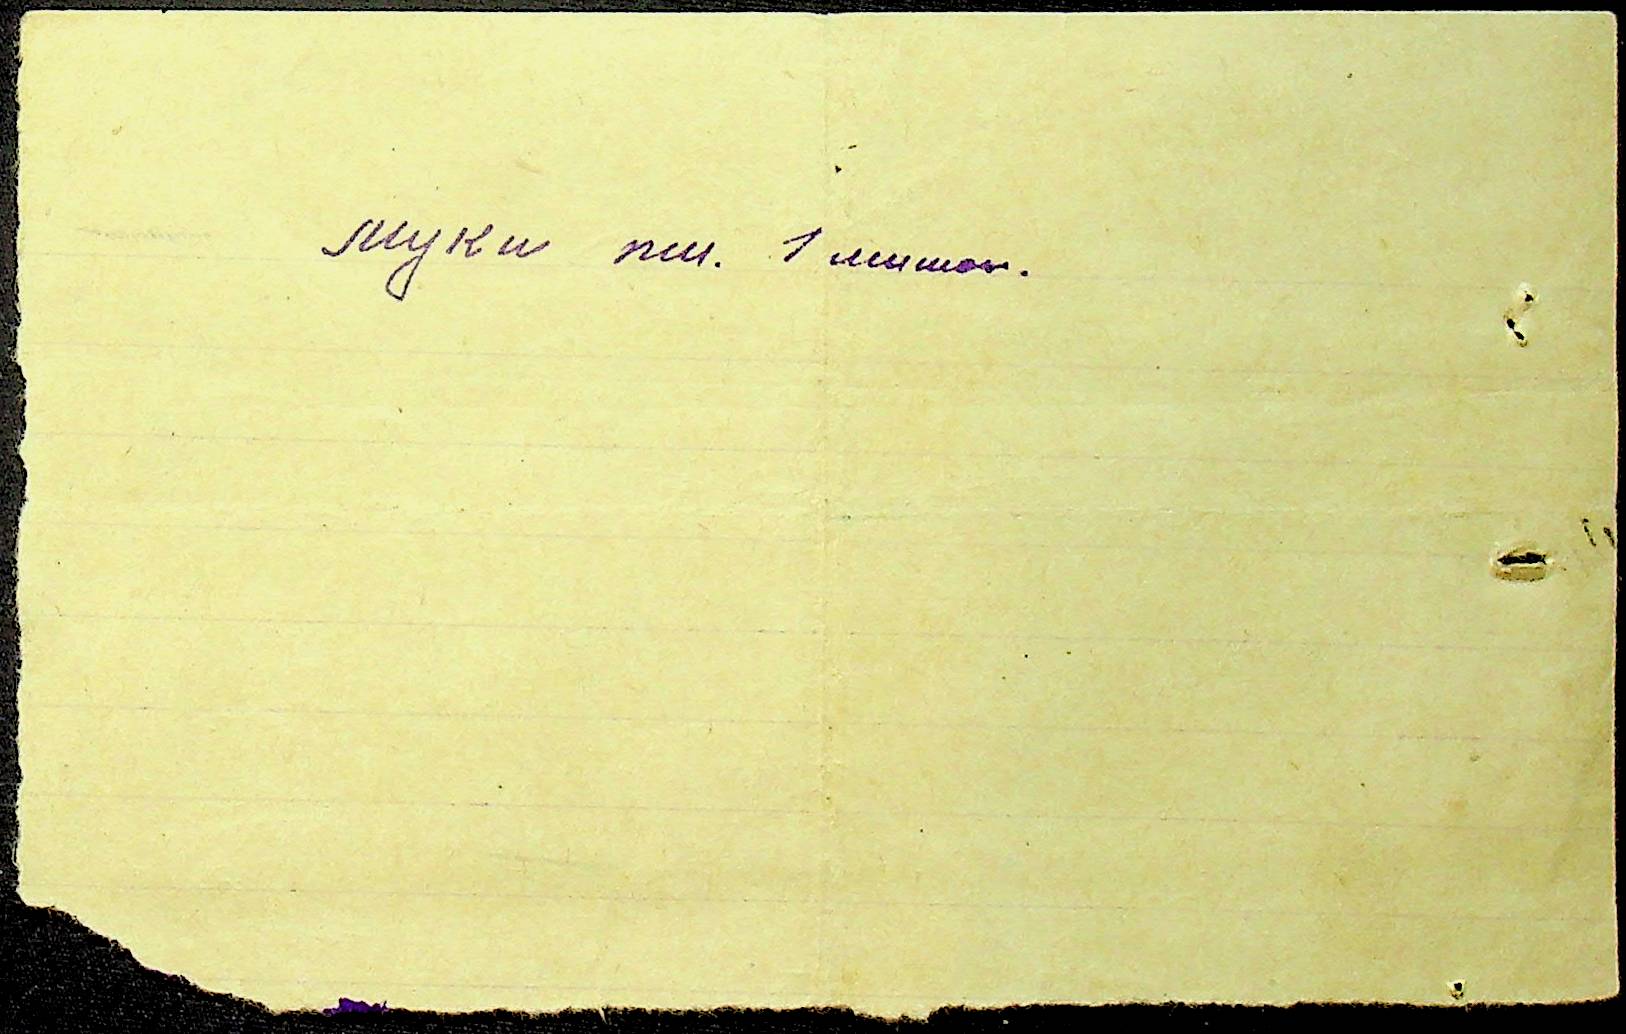 Муки пш. 1 мешок.